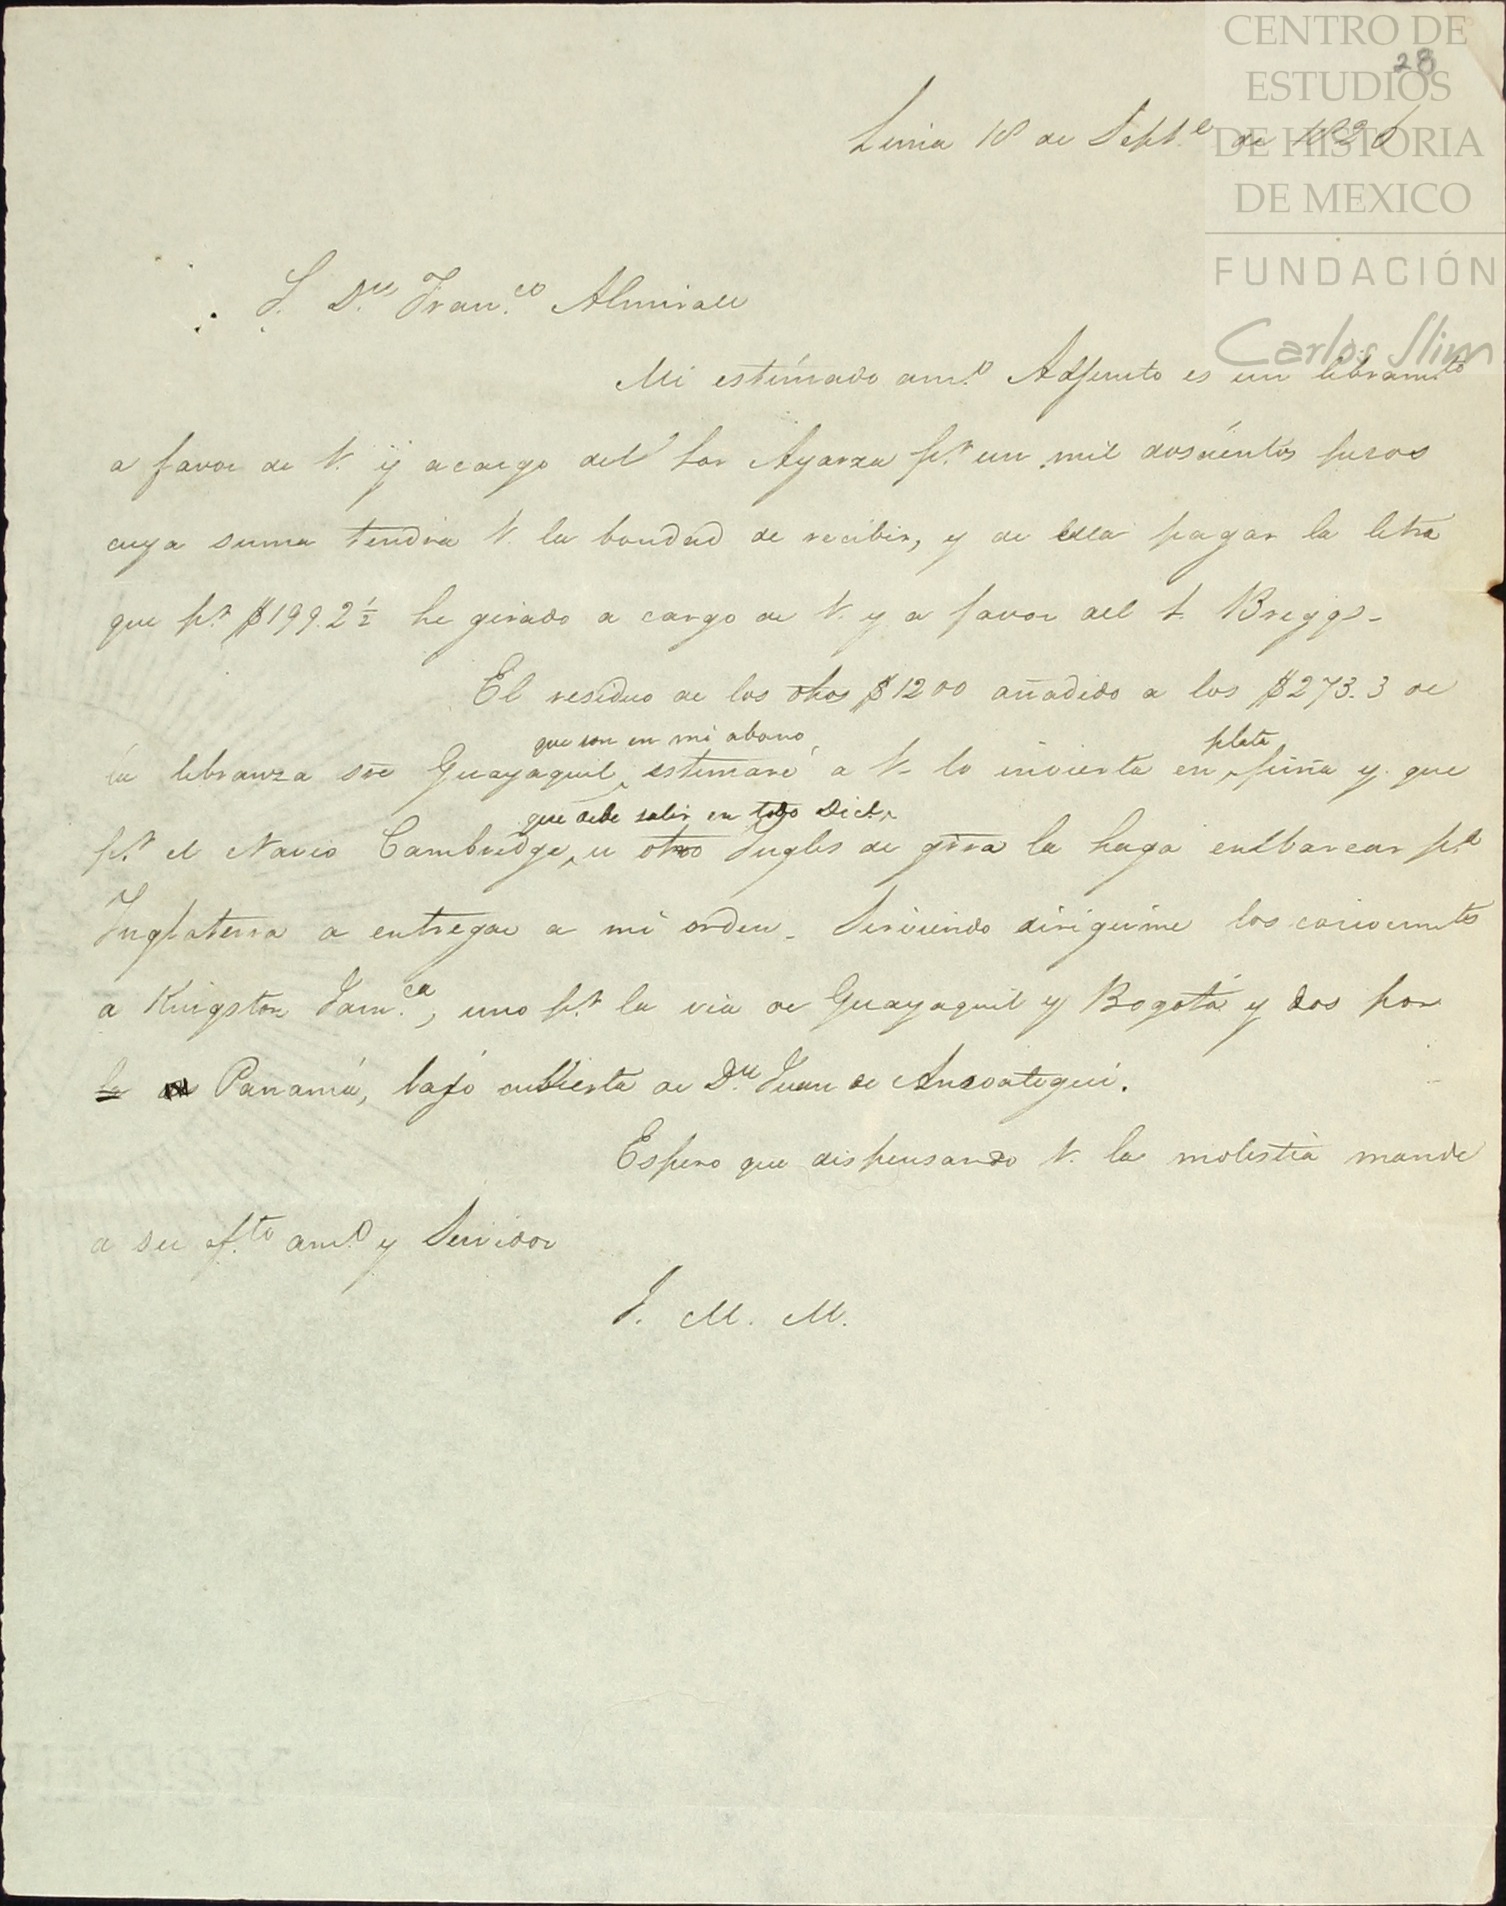 CENTRO DE
ESTUDIOS
DE HISTORIA
DE MEXICO
FUNDACIÓN
Carlos Slim
28
Lima 18 de Septe de 1826
S. Dn Franco Almirall
Mi estimado amo Adjunto es un libramto
a favor de V. y a cargo del Sor Ayarza pr un mil doscientos pesos
cuya suma tendra V. la bondad de recibir, y de ella pagar la letra
que pr $199.2½ he girado a cargo de V. y a favor del S. Briggs-
El residuo de los dhos $1200 añadido a los $273.3 de
que son en mi abono
plata
la libranza sre Guayaquil, estimaré a V- lo invierta en piña y que
que debe salir en todo Dice
pr el Navio Cambridge, u otro Ingles de grra la haga embarcar pa
Inglaterra a entregar a mi orden_ Sirviendo dirigirme los conocimtos
a Kingston Jamca, uno pr la via de Guayaquil y Bogotá y dos por
la Panamá, bajo cubierta de Dn Juan de Ansoategui.
Espero que dispensando V. la molestia mande
a su afto amo y Servidor
J. M. M.